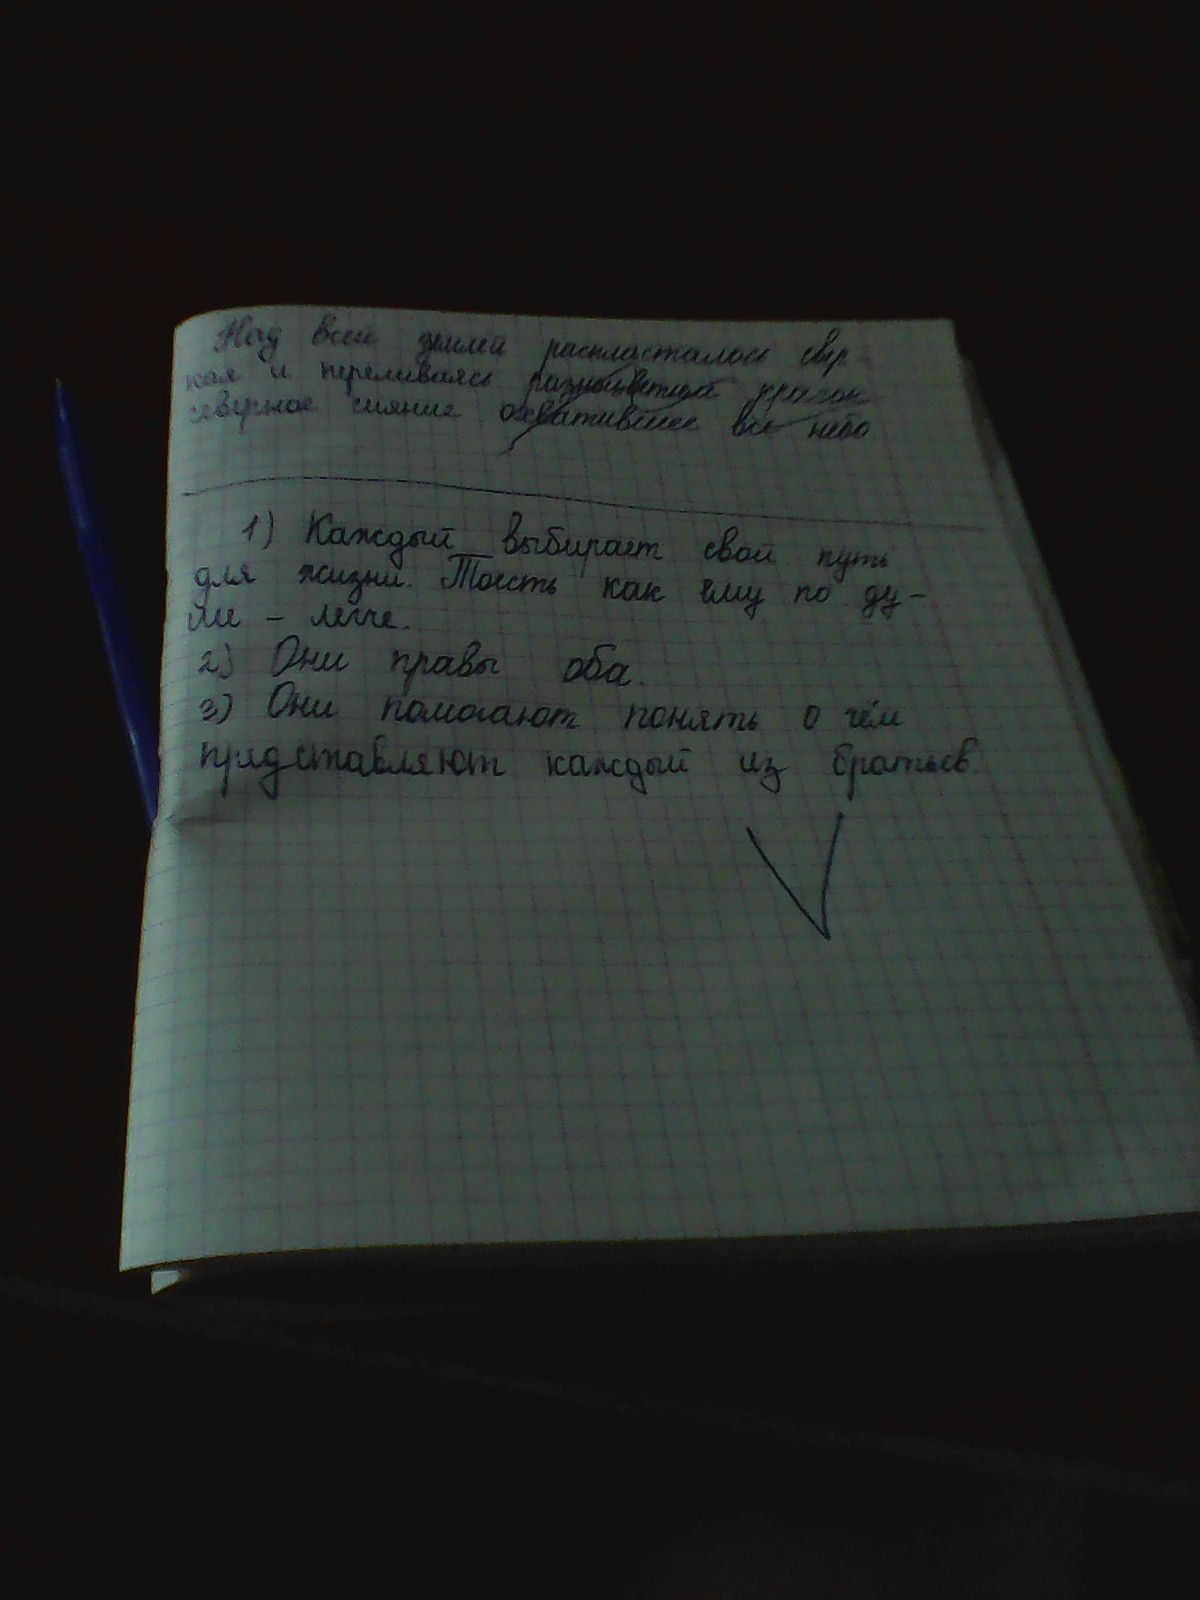 Над всей землей распласталось свер
кая и переливаясь разноцветьем красок
северное сияние охватившее все небо
1) Каждый выбирает свой путь
для жизни. Тоесть как ему по ду-
ши - легче.
2) Они правы оба.
3) Они помогают понять о чём
представляют каждый из братьев.